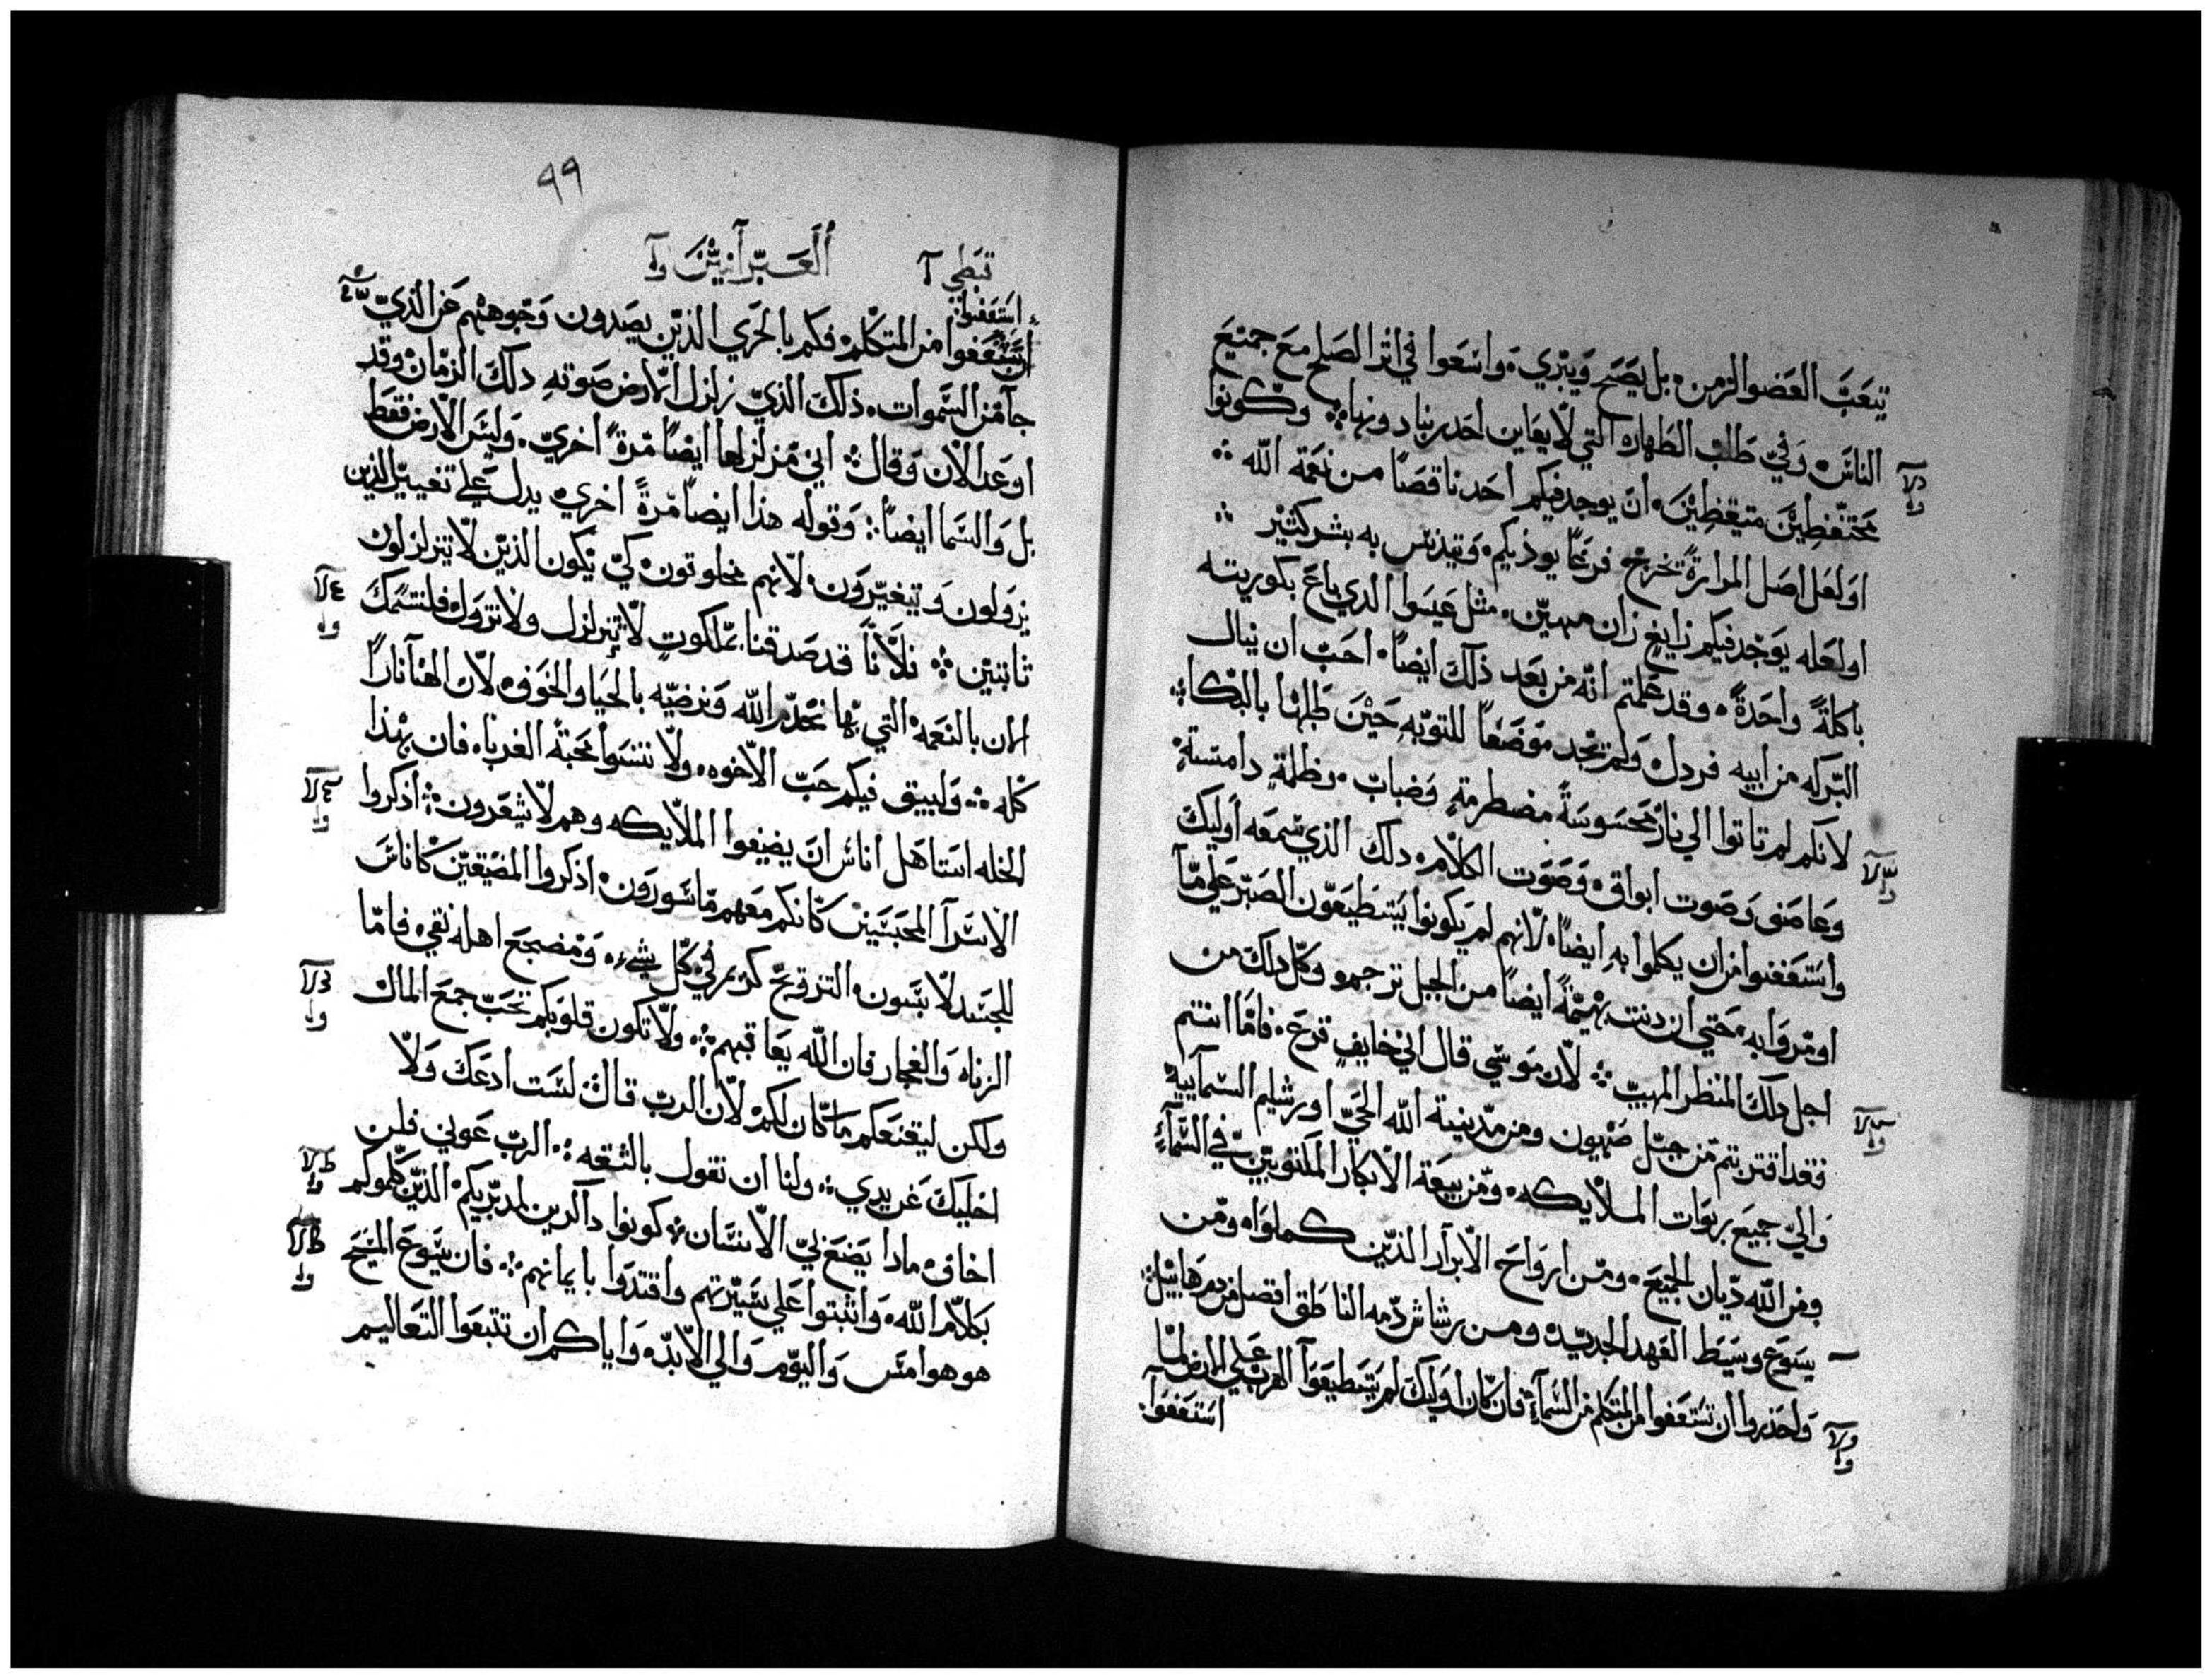 تبعَبَ العَضو الزمن. بل يصَحَ وَيبْري. وَاسَعوا في اثر الصَلح معَ جمَيعَ
الناسَ. وَفيّ طلب الطهاره التي لا يعَاين احَد ربنا دونها. وكونوا
محتَفظينَ متيَقظينَ. انّ يوجد فيكم احَد ناقصًا من نعَمة الله
اوَلعَل اصَل المرارةً تخرج فرعًا يوذيكم. وَتيدنس به بشر كثير
اولعَله يَوجَد فيكم زايغ زان مهيّن. مثل عَيسَوا الدي باعَ بكوريته
باكلةً واحَدةً. وقد عَلمتم انه من بَعَد ذلكَ ايضًا. احَبّ ان ينال
البَركه من ابيه فردل. وَلم يجد موَضعًا للتوبه حَيْنَ طلبها بالبكاء
لانكم لم تاتوا الي نار محسَوسَةً مضطرمةٍ وَضباب. وظلمةٍ دامسَةٍ
وعَاصَف وَصَوت ابواق. وَصَوت الكلام. دلك الذي سمعَه اوليكَ
وَاستَعَفوا من ان يكلموا بهِ ايضًا. لانهم لم يَكونوا يَسَتطيَعَون الصَبرَ عَلي ما
اومَروَا به. حَتي ان دنت بهَيمَةً ايضًا من الجبل ترجم. وَكل دلكَ من
اجل دلكَ المنظر المهيبّ. لان مَوسي قال اني خايف فزعَ. فامّا انتم
فقد اقتربتم من جَبل صَهيون ومن مدينة الله الحَيّ اورشليم السمآييه
وَاليّ جميعَ ربوَات الملايكه. ومن بيعَة الابكار المكتوبيّن في السَّمآء
ومن الله ديّان الجميَع. ومّن ارَواحَ الابرار الذيّن كملوَا. ومّن
يسَوع وسَيط العَهد الجديد. ومن رشاش دّمه الناطق افضل من دم هابيل
وَاحَذروا ان تسَتَعَفوا من المتكلم من السَّمآء فان كان اوليكَ لم يَسَتطيعَوا الهربَ عَلي الارض لما
استَعَفوَا.
٩٩
قبَطي
العَبّرانيّنَ
استَعَفوا
استَعَفوا من المتكلم فكم بالحَّري الذيّن يصَدون وَجَوههَم عَن الذيّ
جآ من السَّموات. ذلكَ الذيّ زلزل الارض صَوته دلكَ الزمان وقد
اوعَد الان وَقال. انيّ مزلزلها ايضًا مَرةً اخريّ. وَليسَ الارض فقط
بل وَالسَّما ايضًا. وَقوله هذا ايضًا مَرةً اخري. يدل عَلي تغيير الذين
يزولون وَيتغيّرون. لانهم مخلوقون. كيّ يكون الذيّن لا يتزلزلون
ثابتيّن. فلانّا قد صَدقنا بملكوتٍ لا يتزلزل ولا تزوَل. فلنتسَّمكَ
الان بالنعَمة التي بها نخدّم الله وَنرضيّه بالحَيا وَالخوَف. لان الهنآ نارًا
كله. وَليبق فيكم حَبّ الاخوه. ولا تنسَوا محَبةَ الغربا. فان بهَذا
الخله استاهَل اناسَ ان يضيفوا الملايكه وهم لا يشعَرون. اذكروا
الاسَرآ المحَبسَين كانكم معَهم ماسَورَون. اذكروا المضيّقيّن كاناسَ
للجسَد لابسَون. التزويجَ كريم فيّ كل شيء. وَمضجعَ اهله نقي. فامّا
الزناه وَالفجار فان الله يعَاقبهم. ولا تكون قلوبكم تحَبّ جمعَ المال
ولكن ليقنعَكم مآ كان لكم. لان الربّ قال لسَت ادعَكَ وَلا
اخليكَ عَن يدي. ولنا ان نقول بالثقه. الربّ عَوني فلن
اخاف. مادا يَصَنَع بيّ الانسَان. كونوا ذآكرين لمدبّريكم الذيّن كلموكم
بكلام الله. وَاثبتوا عَلي سَيّرتهم وَاقتدوا بايمانهم. فان يسَوعَ المسَيحَ
هو هوا امسَ وَاليوم وَالي الابد. وَاياكم ان تتبعَوا التعَاليم